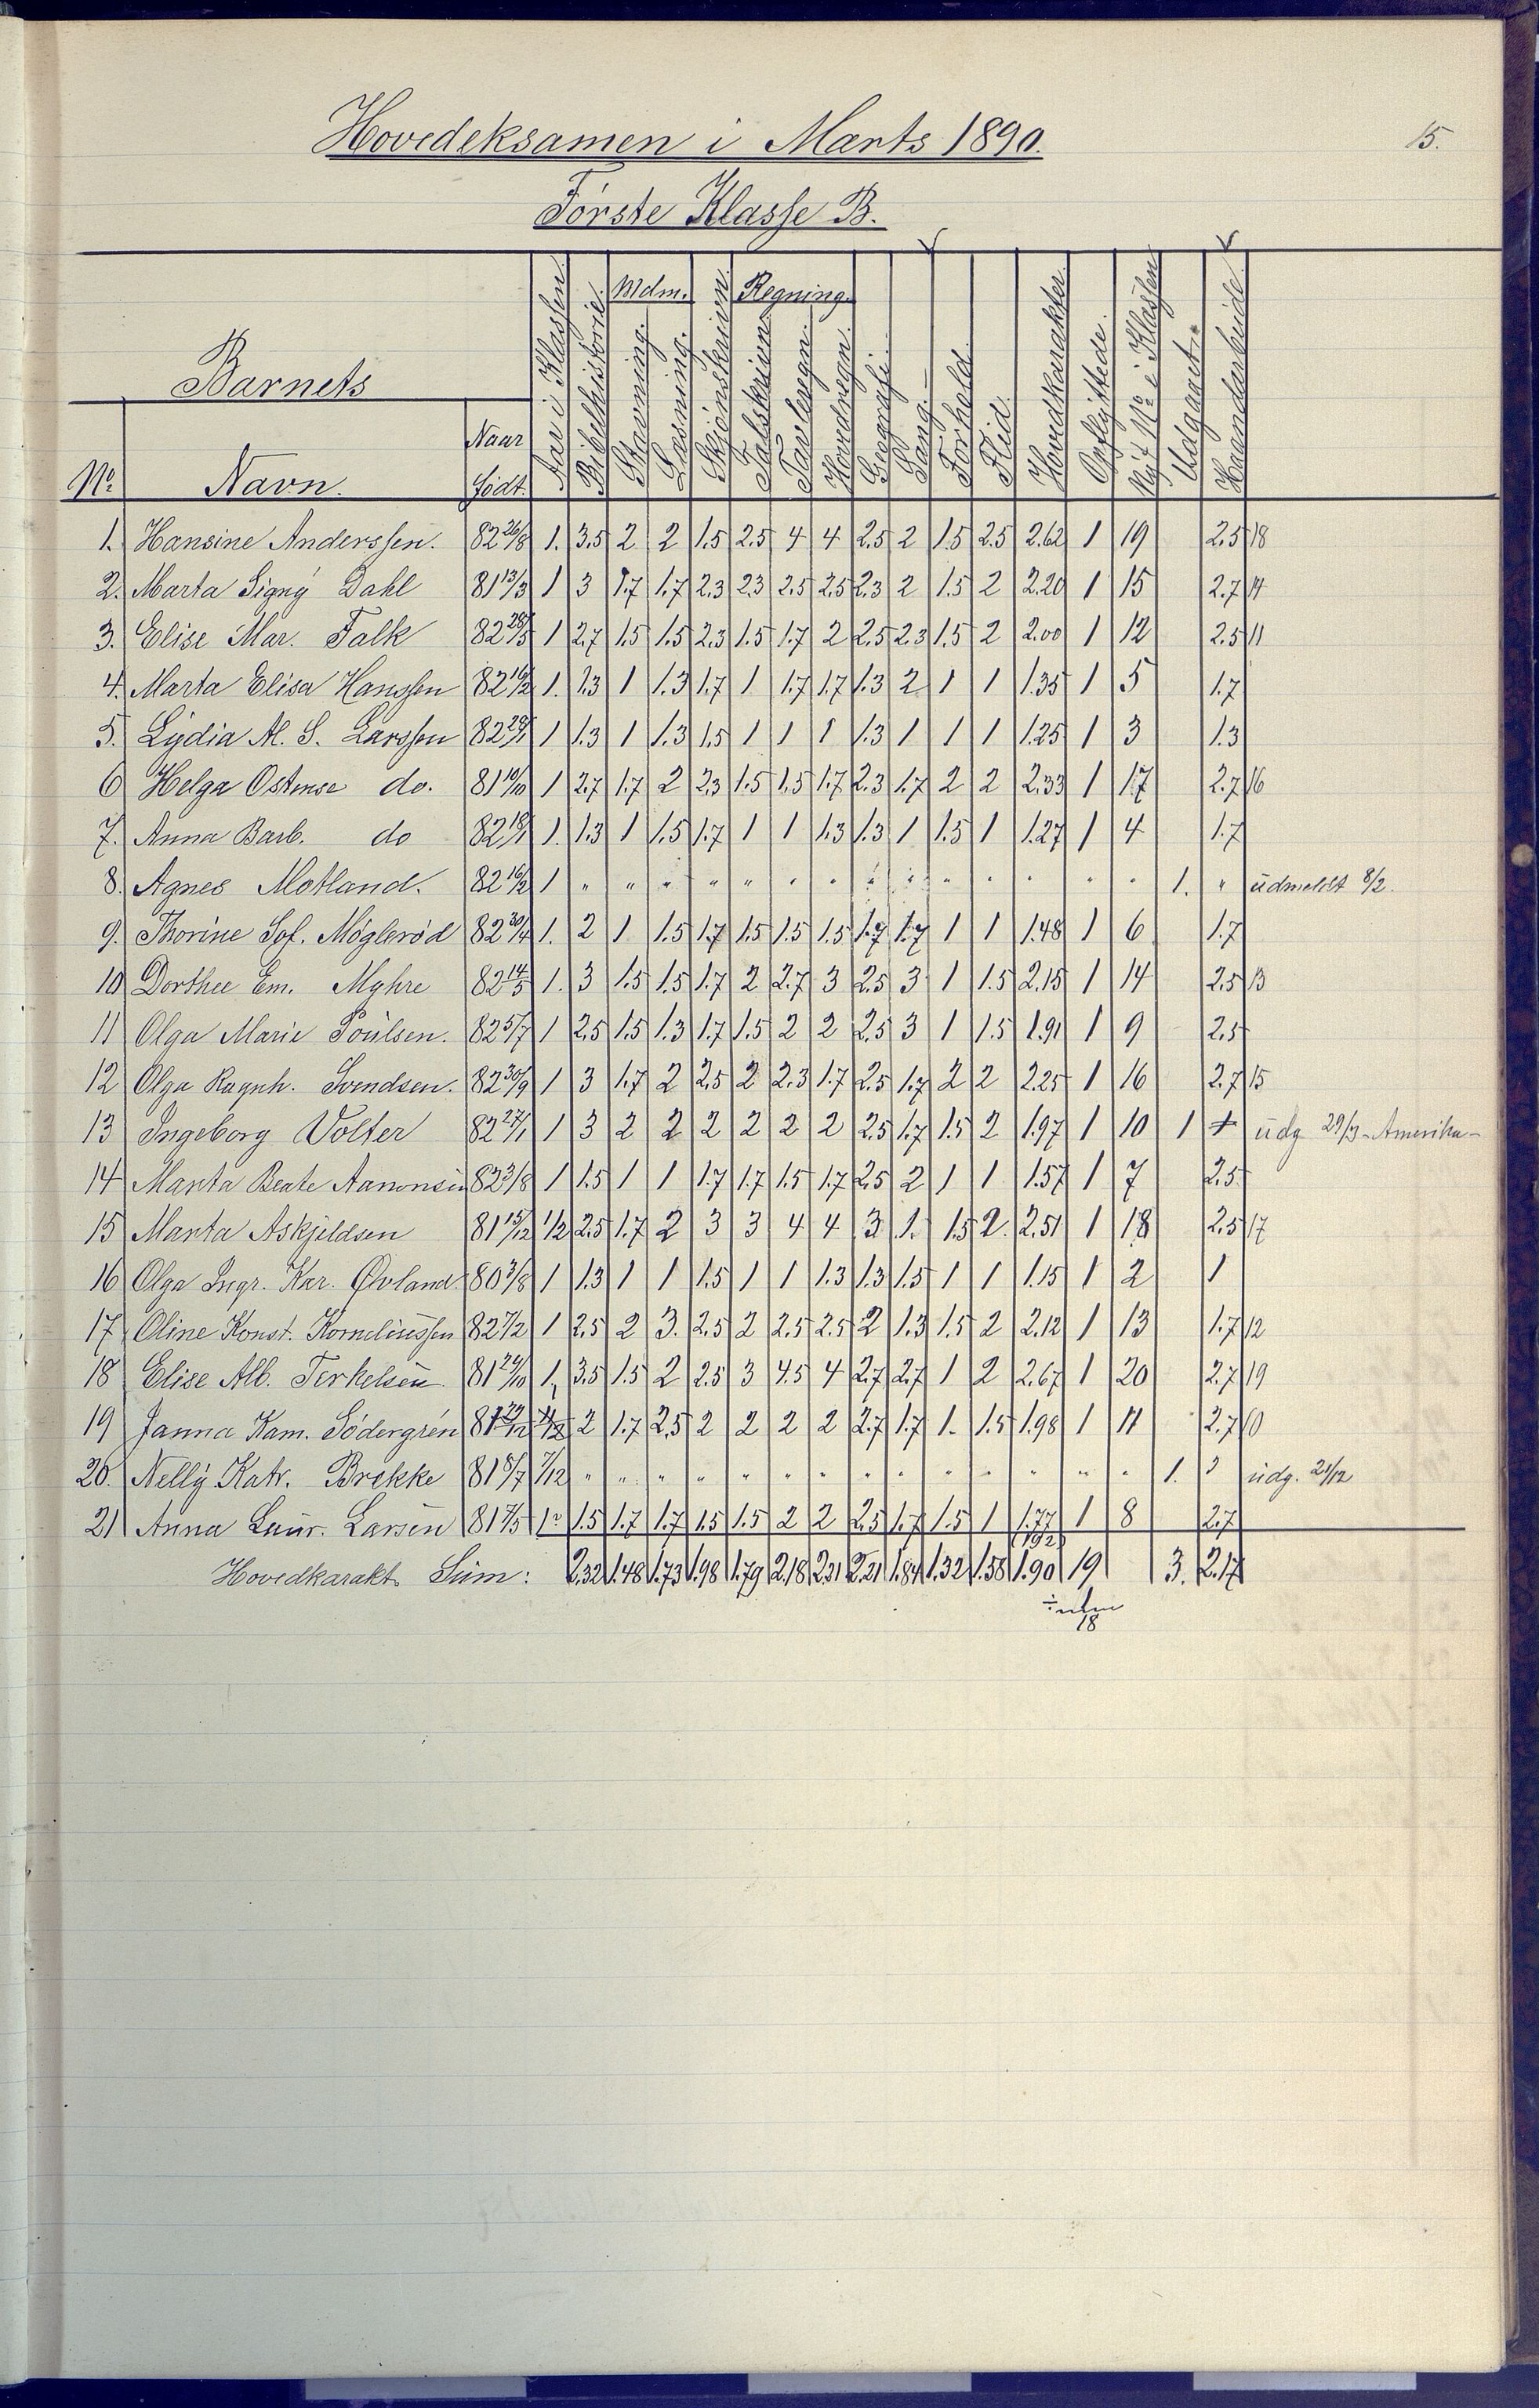 Hovedeksamen i Marts 1890.
15.
Første Klasse B.
Barnets
No. Navn. Naar født. Aar i Klassen. Bibelhistorie. Mdm. Stavning. Læsning. Skjønskrivn. Regning. Talskrivn. Tavleregn. Hovedregn. Geografi. Sang. Forhold. Flid. Hovedkarakter. Opflyttede. Nyt No. i Klassen Udgaaet. Haandarbeide.
1. Hansine Anderssen. 82 26/8 1. 3.5 2 2 1.5 2.5 4 4 2.5 2 1.5 2.5 2.62 1 19 2.5 18
2. Marta Signy Dahl 81 13/3 1 3 1.7 1.7 2.3 2.3 2.5 2.5 2.3 2 1.5 2 2.20 1 15 2.7 14
3. Elise Mar. Falk 82 28/5 1 2.7 1.5 1.5 2.3 1.5 1.7 2 2.5 2.3 1.5 2 2.00 1 12 2.5 11
4. Marta Elisa Hanssen 82 16/2 1. 1.3 1 1.3 1.7 1 1.7 1.7 1.3 2 1 1 1.35 1 5 1.7
5. Lydia M. S. Larssen 82 29/1 1 1.3 1 1.3 1.5 1 1 1 1.3 1 1 1 1.25 1 3 1.3
6 Helga Ostense do. 81 10/10 1 2.7 1.7 2 2.3 1.5 1.5 1.7 2.3 1.7 2 2 2.33 1 17 2.7 16
7. Anna Barb. do 82 18/1 1. 1.3 1 1.5 1.7 1 1 1.3 1.3 1 1.5 1 1.27 1 4 1.7
8. Agnes Motland. 82 16/2 1 " " " " " " " " " " " " " " 1. " udmeldt 8/2.
9. Thorine Sof. Møglerød 82 30/4 1. 2 1 1.5 1.7 1.5 1.5 1.5 1.7 1.7 1 1 1.48 1 6 1.7
10 Dorthee Em. Myhre 82 14/5 1. 3 1.5 1.5 1.7 2 2.7 3 2.5 3 1 1.5 2.15 1 14 2.5 13
11 Olga Marie Poulsen. 82 5/7 1 2.5 1.5 1.3 1.7 1.5 2 2 2.5 3 1 1.5 1.91 1 9 2.5
12 Olga Ragnh. Svendsen. 82 30/9 1 3 1.7 2 2.5 2 2.3 1.7 2.5 1.7 2 2 2.25 1 16 2.7 15
13 Ingeborg Volter 82 27/1 1 3 2 2 2 2 2 2 2.5 1.7 1.5 2 1.97 1 10 1 udg 29/3 - Amerika -
14 Marta Beate Aanonsen 82 3/8 1 1.5 1 1 1.7 1.7 1.5 1.7 2.5 2 1 1 1.57 1 7 2.5
15 Marta Askjeldsen 81 15/12 1/2 2.5 1.7 2 3 3 4 4 3 1. 1.5 2. 2.51 1 18 2.5 17
16 Olga Ingr. Kar. Øvland. 80 3/8 1 1.3 1 1 1.5 1 1 1.3 1.3 1.5 1 1 1.15 1 2 1
17 Oline Konst. Korneliussen 82 7/2 1 2.5 2 3. 2.5 2 2.5 2.5 2 1.3 1.5 2 2.12 1 13 1.7 12
18 Elise Alb. Terkelsen 81 29/10 1, 3.5 1.5 2 2.5 3 4.5 4 2.7 2.7 1 2 2.67 1 20 2.7 19
19 Janna Kam. Södergrén 2 1.7 2.5 2 2 2 2 2.7 1.7 1. 1.5 1.98 1 11 2.7 10
20. Nelly Katr. Brekke 81 8/7 7/12 " " " " " " " " " " " " " " 1. " udg. 21/12
21 Anna Laur. Larsen 81 7/5 1 1.5 1.7 1.7 1.5 1.5 2 2 2.5 1.7 1.5 1 1.77 1 8 2.7
(1.92)
Hovedkarakt. Sum: 2.32 1.48 1.73 1.98 1.79 2.18 2.21 2.21 1.84 1.32 1.58 1.90 19 3. 2.17
18